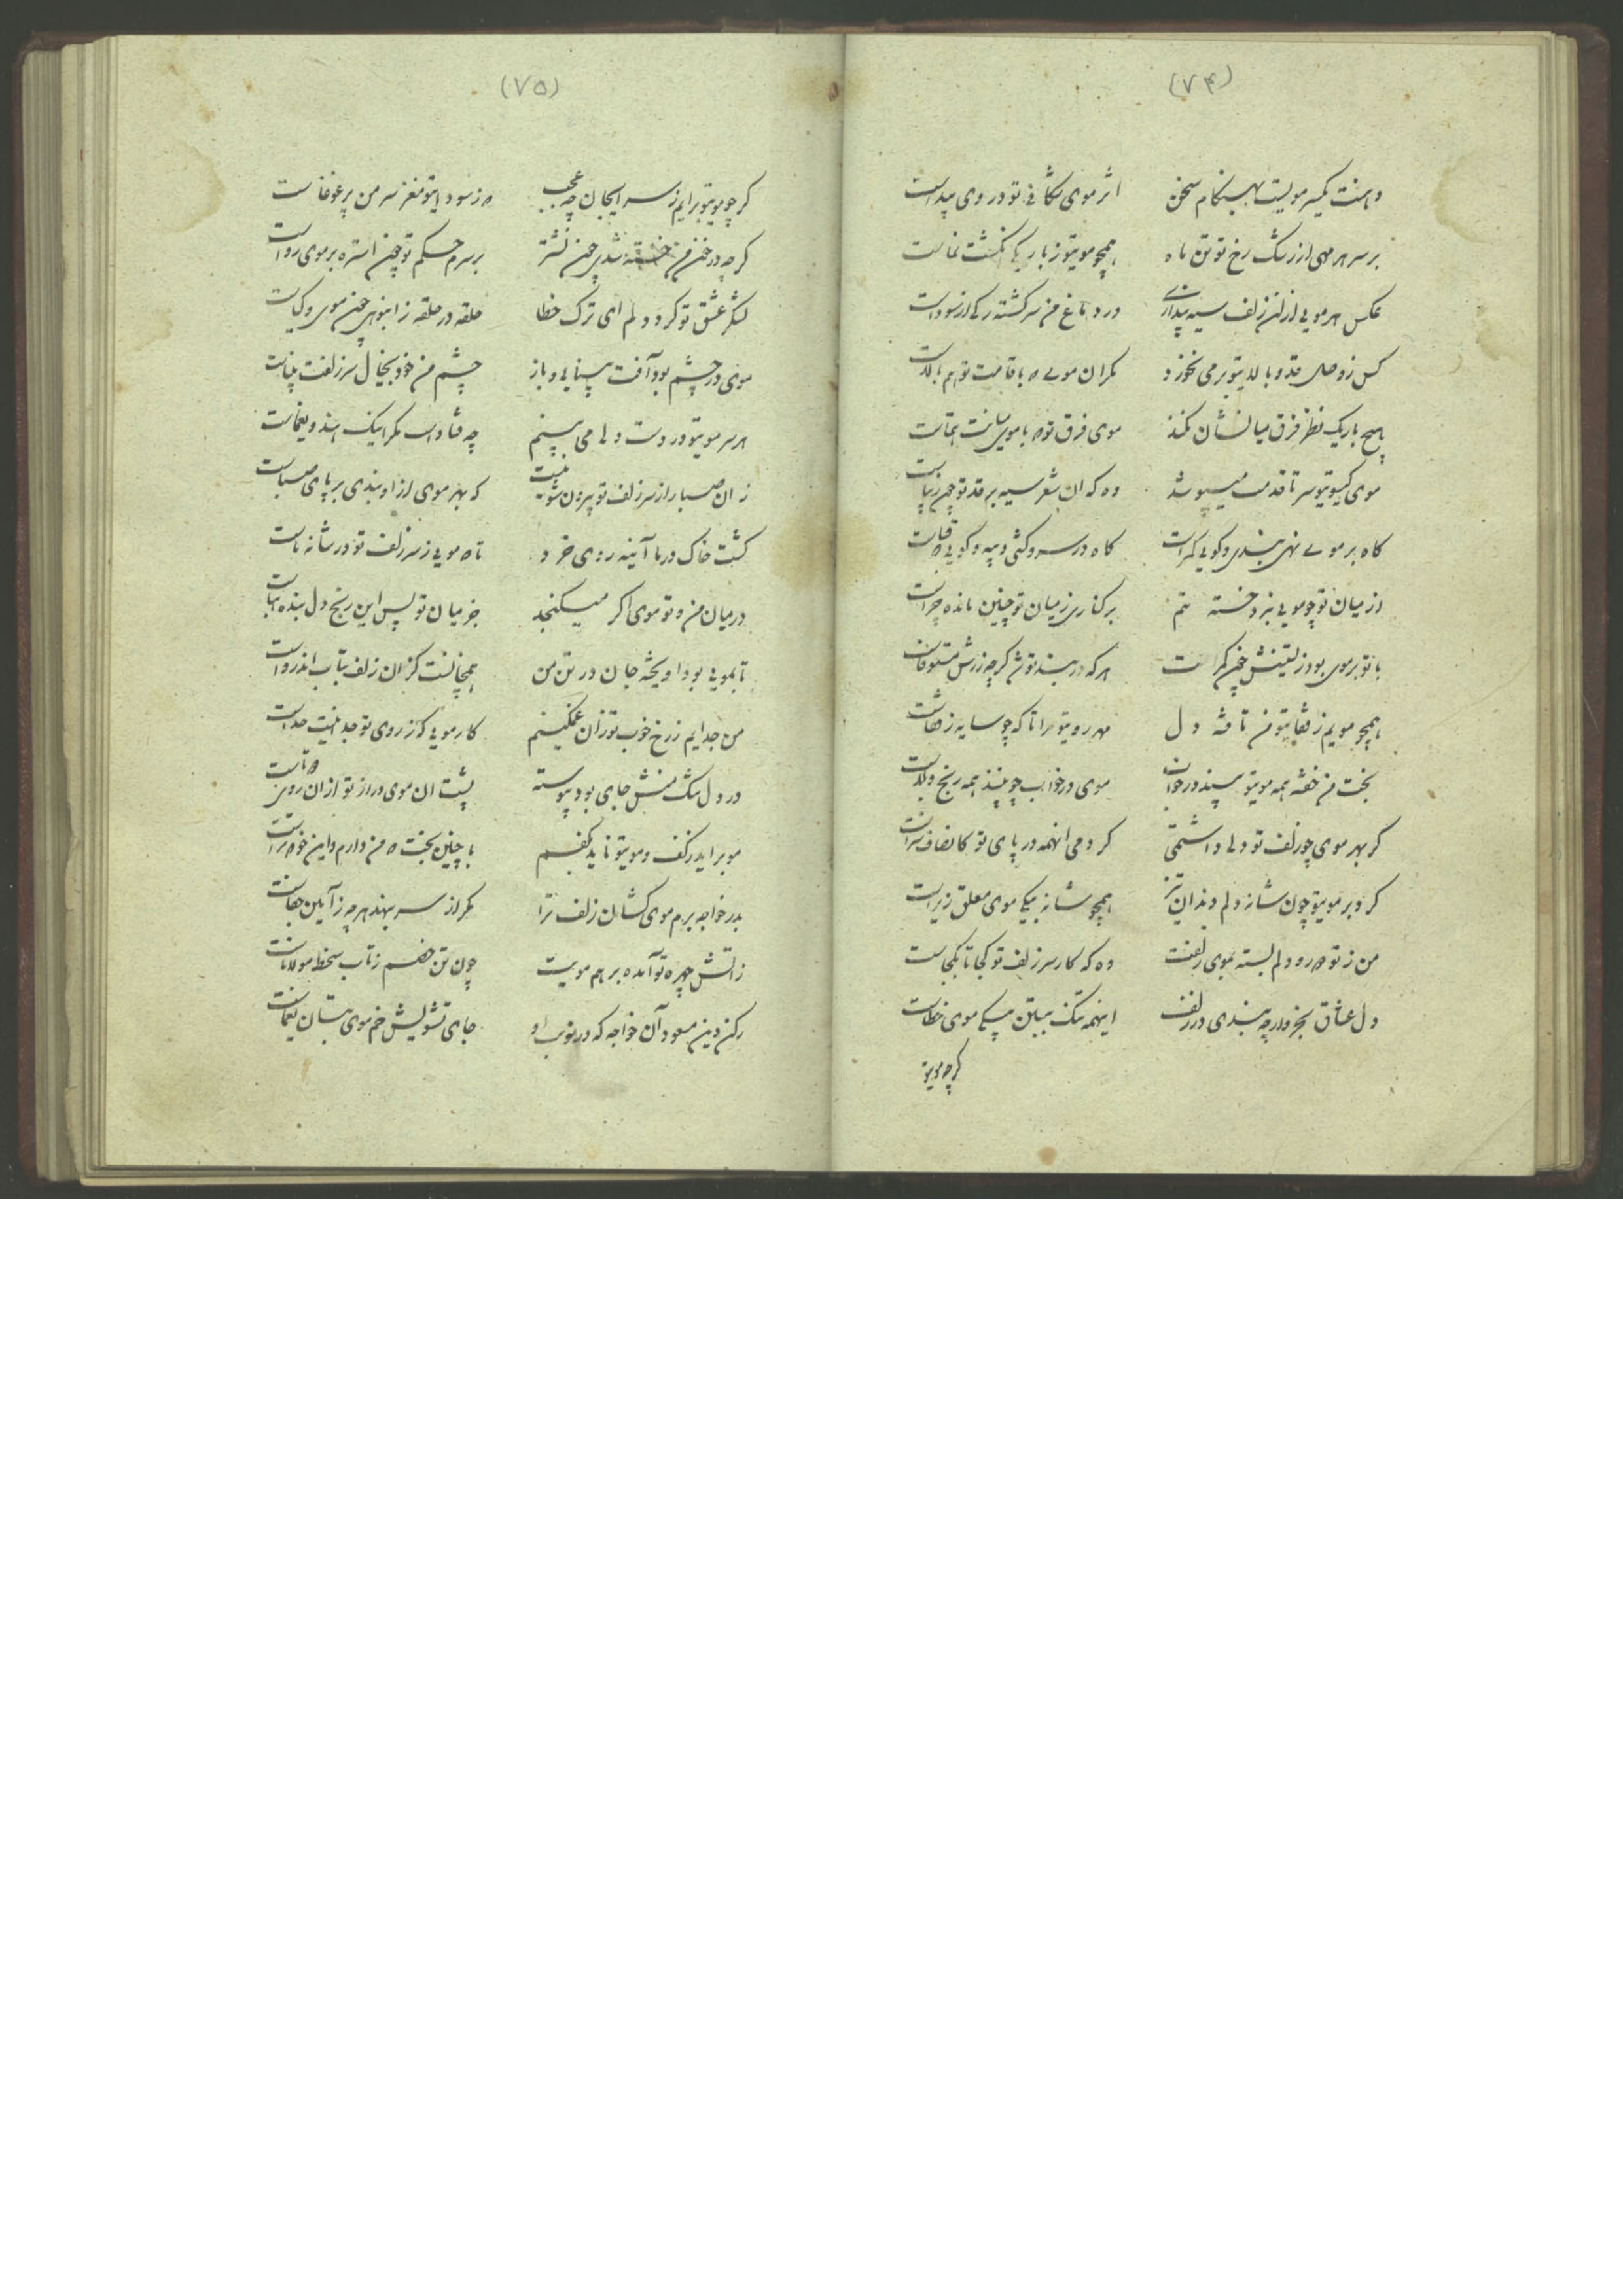 (۷۴)
دهنت یکسر مویست بهنگام سخن اثر موی شکافی تو در وی پیداست
بر سر هر مهی از رشک رخ تو تن ماه همچو موی تو ز باریکی انگشت نماست
عکس هر مویی از آن زلف سیه پنداری در دماغ من سرگشته رگی از سوداست
کس ز وصل قد و بالای تو بر می نخورد مگر آن موی که با قامت تو هم بالاست
هیچ باریک نظر فرق میانشان نکند موی فرق تو که با موی میانت همتاست
موی گیسوی تو سر تا قدمت میپوشد وه که آن شعر سیه بر قد تو چون زیباست
گاه بر موی نهی بندی و گویی کمر است گاه در سر و کشی و گویی که قباست
از میان تو چو مویی بنزد خسته تنم بر کناری ز میان تو چنین مانده چراست
با تو بر موی بود زیستنش چون کمرت هر که در بند تو شد گرچه زرش مستوفاست
همچو مویم ز قفای تو من تافته دل مهر روی تو مرا تا که چو سایه ز قفاست
بخت من خفته همه موی تو بیند در خواب موی در خواب چو بینند همه رنج و بلاست
گر بهر موی چو زلف تو دلی داشتمی کردمی آنهمه در پای تو کانصاف سزاست
کرد بر موی تو چون شانه دلم دندان تیز همچو شانه بیکی موی معلق زیراست
من ز تو دور و دلم بسته بموی زلفت وه که کار سر زلف تو کجا تا بکجاست
دل عشاق بخروار چه بندی در زلف اینهمه تنگ ببستن بیکی موی خطاست
گرچه موی تو
(۷۵)
گر چو موی تو برآیم ز سر ایجان چه عجب که ز سودای تو مغز سر من پر غوغاست
گرچه در خون من خسته شدی چون نشتر بر سرم حکم تو چون استره بر موی رواست
لشکر عشق تو گرد دلم ای ترک خطا حلقه در حلقه ز انبوهی چون موی وکیاست
موی در چشم بود آفت بینایی و باز چشم من خود بخیال سر زلفت بیناست
هر سر موی تو در دست دلی می بینم چه فتاداست مگر اینک هندو یغماست
زان صبا را ز سر زلف تو بیرون شو نیست که بهر موی از او بندی بر پای صباست
گشت خاک در ما آینه روی خرد تا که مویی ز سر زلف تو در شانه ماست
در میان من و تو موی اگر میگنجد جز میان تو پس این رنج دل بنده بهاست
تا بمویی بود آویخته جان در تن من همچنانست کز آن زلف بتاب اندرواست
من جدایم ز رخ خوب تو زان غمگینم کار مویی که ز روی تو جدا نیست جداست
در دل سنگ منش جای بود پیوسته پشت آن موی دراز تو از آن روی دوتاست
مو برآید ز کف و موی تو ناید بکفم با چنین بخت که من دارم و این خو که تراست
بدر خواجه برم موی کشان زلف ترا مگر از سر بنهد هر چه ز آیین جفاست
ز آتش چهره تو آمده بر هم مویت چون تن خصم ز تاب سخط مولاناست
رکن دین مسعود آن خواجه که در نوبت او جای تشویش خم موی بتان یغماست